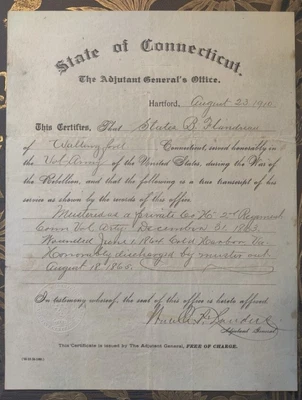 State of Connecticut.
The Adjutant General's Office.
Hartford, August 23 1910
This Certifies, That B.
of Wallingford Connecticut, served honorably in
the Vol. Army of the United States, during the War of
the Rebellion, and that the following is a true transcript of his
service as shown by the records of this office.
Mustered as a private Co. 2nd Regiment
Conn. Vol. Arty. December 31 1863.
Wounded June 1 1864 Cold Harbor Va.
Honorably discharged by muster out
August 18, 1865.
In testimony whereof, the seal of this office is hereto affixed.
Adjutant General.
This Certificate is issued by The Adjutant General, FREE OF CHARGE.